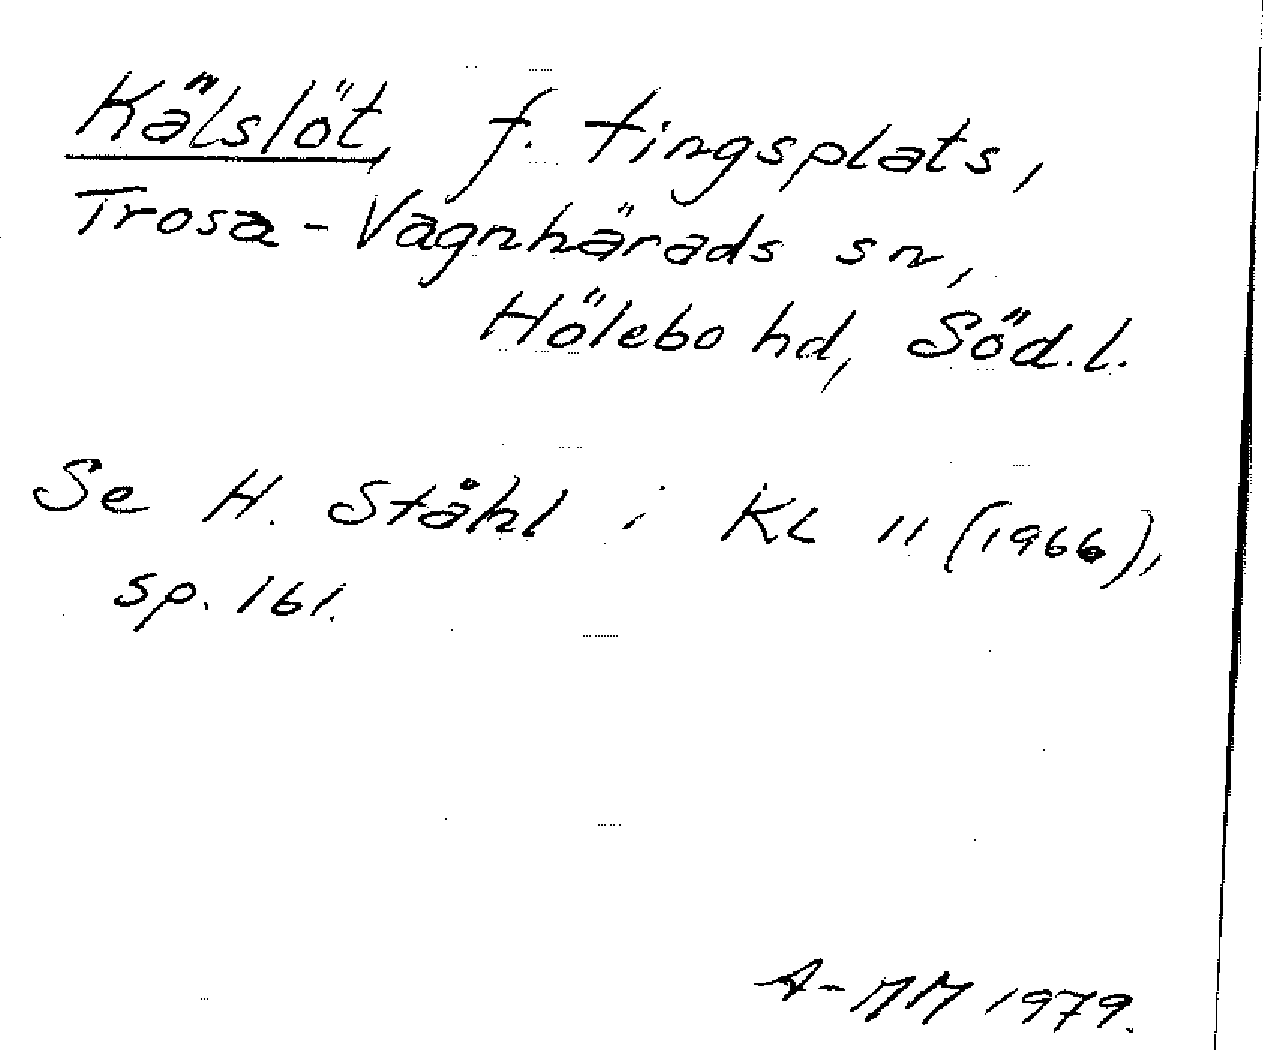 Kälslöt, f. tingsplats,
Trosa-Vagnhärads sn,
Hölebo hd, Söd.l.
Se H. Ståhl i KL 11 (1966),
sp. 161.
A-MM 1979.